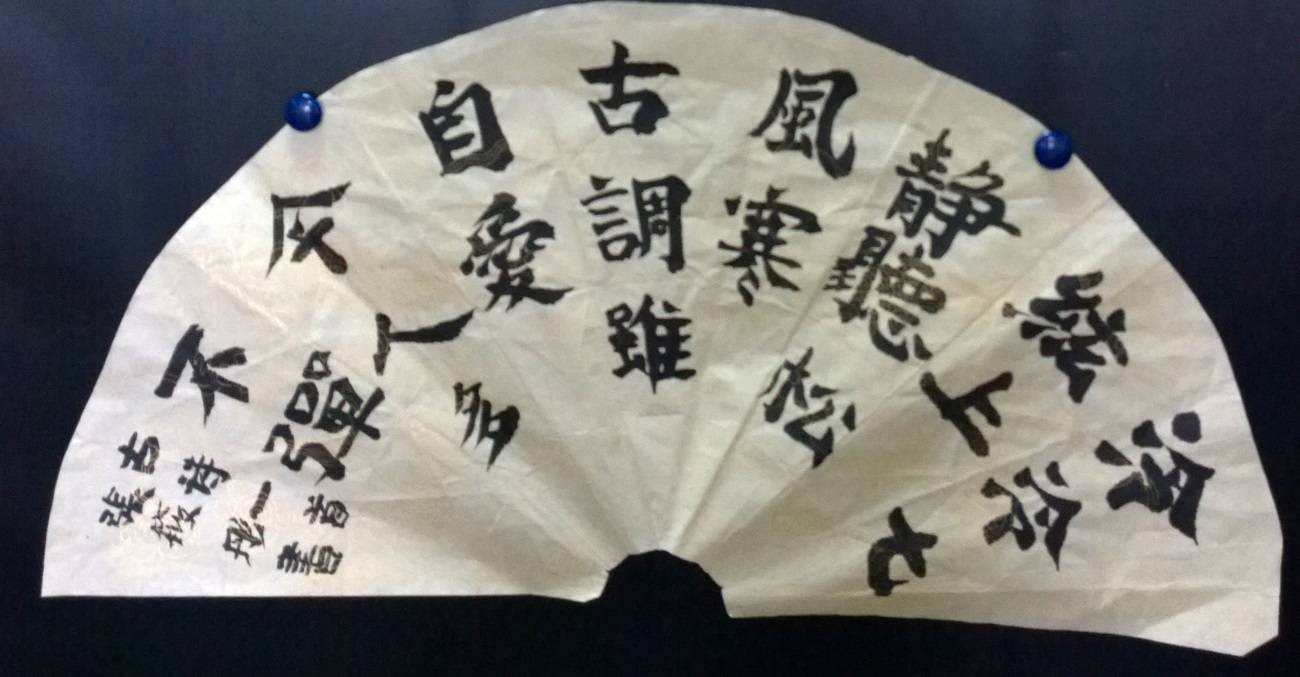 泠泠七
絃上
靜聽松
風寒
古調雖
自愛
今人多
不彈
古詩一首
張筱彤書